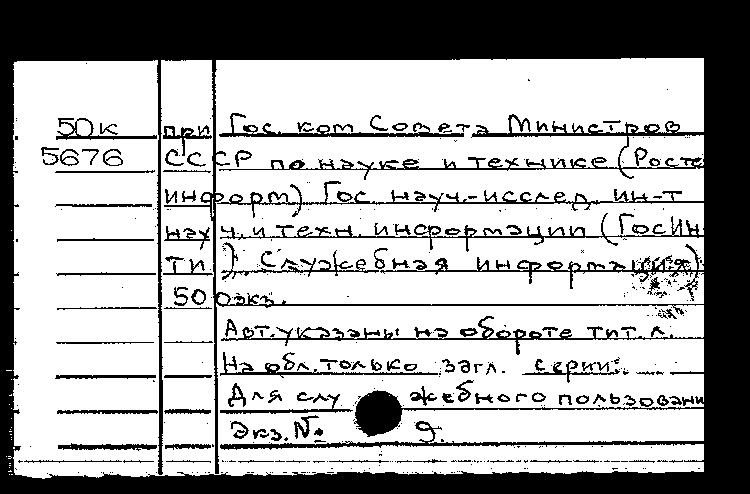 50к при Гос. ком. Совета Министров
5676 СССР по науке и технике (Росте
информ) Гос. науч.-исслед. ин-т
науч. и техн. информации (ГосИН
ТИ). Служебная информация)
500 экз.
Авт. указаны на обороте тит. л.
На обл. только загл. серии.
Для служебного пользовани
Экз. № 9.